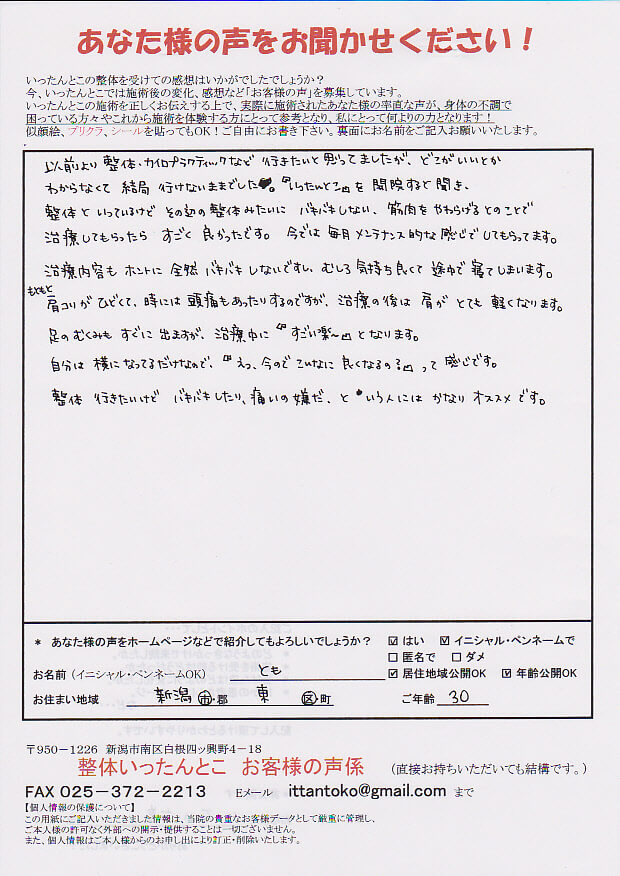 あなた様の声をお聞かせください！
いったんとこの整体を受けての感想はいかがでしたでしょうか？
今、いったんとこでは施術後の変化、感想など「お客様の声」を募集しています。
いったんとこの施術を正しくお伝えする上で、実際に施術されたあなた様の率直な声が、身体の不調で
困っている方々やこれから施術を体験する方にとって参考となり、私にとって何よりの力となります！
似顔絵、プリクラ、シールを貼ってもOK！ご自由にお書き下さい。裏面にお名前をご記入お願いいたします。
以前より 整体・カイロプラクティックなど 行きたいと思ってましたが、どこがいいとか
わからなくて 結局 行けないままでした。『いったんとこ』を 開院すると聞き、
整体と いっているけど その辺の整体みたいに バキバキしない、筋肉を やわらげるとのことで
治療してもらったら すごく 良かったです。 今では 毎月 メンテナンス的な 感じで してもらってます。
治療内容も ホントに 全然 バキバキ しないですし、むしろ 気持ち良くて 途中で 寝てしまいます。
もともと
肩コリが ひどくて、時には 頭痛もあったりするのですが、治療の後は 肩が とても 軽くなります。
足のむくみも すぐに 出ますが、治療中に『すごい楽〜』となります。
自分は 横になってるだけなので、『えっ、今ので こんなに 良くなるの？』って 感じです。
整体 行きたいけど バキバキしたり、痛いの嫌だ、と いう人には かなり オススメです。
* あなた様の声をホームページなどで紹介してもよろしいでしょうか？ ☑ はい ☑ イニシャル・ペンネームで
□ 匿名で □ ダメ
お名前（イニシャル・ペンネームOK） とも ☑ 居住地域公開OK ☑ 年齢公開OK
お住まい地域 新潟 市・郡 東 区・町 ご年齢 30
〒950－1226 新潟市南区白根四ッ興野4－18
整体いったんとこ お客様の声係 （直接お持ちいただいても結構です。）
FAX 025－372－2213 Eメール ittantoko@gmail.com まで
【個人情報の保護について】
この用紙にご記入いただきました情報は、当院の貴重なお客様データとして厳重に管理し、
ご本人様の許可なく外部への開示・提供することは一切ございません。
また、個人情報はご本人様からのお申し出により訂正・削除いたします。